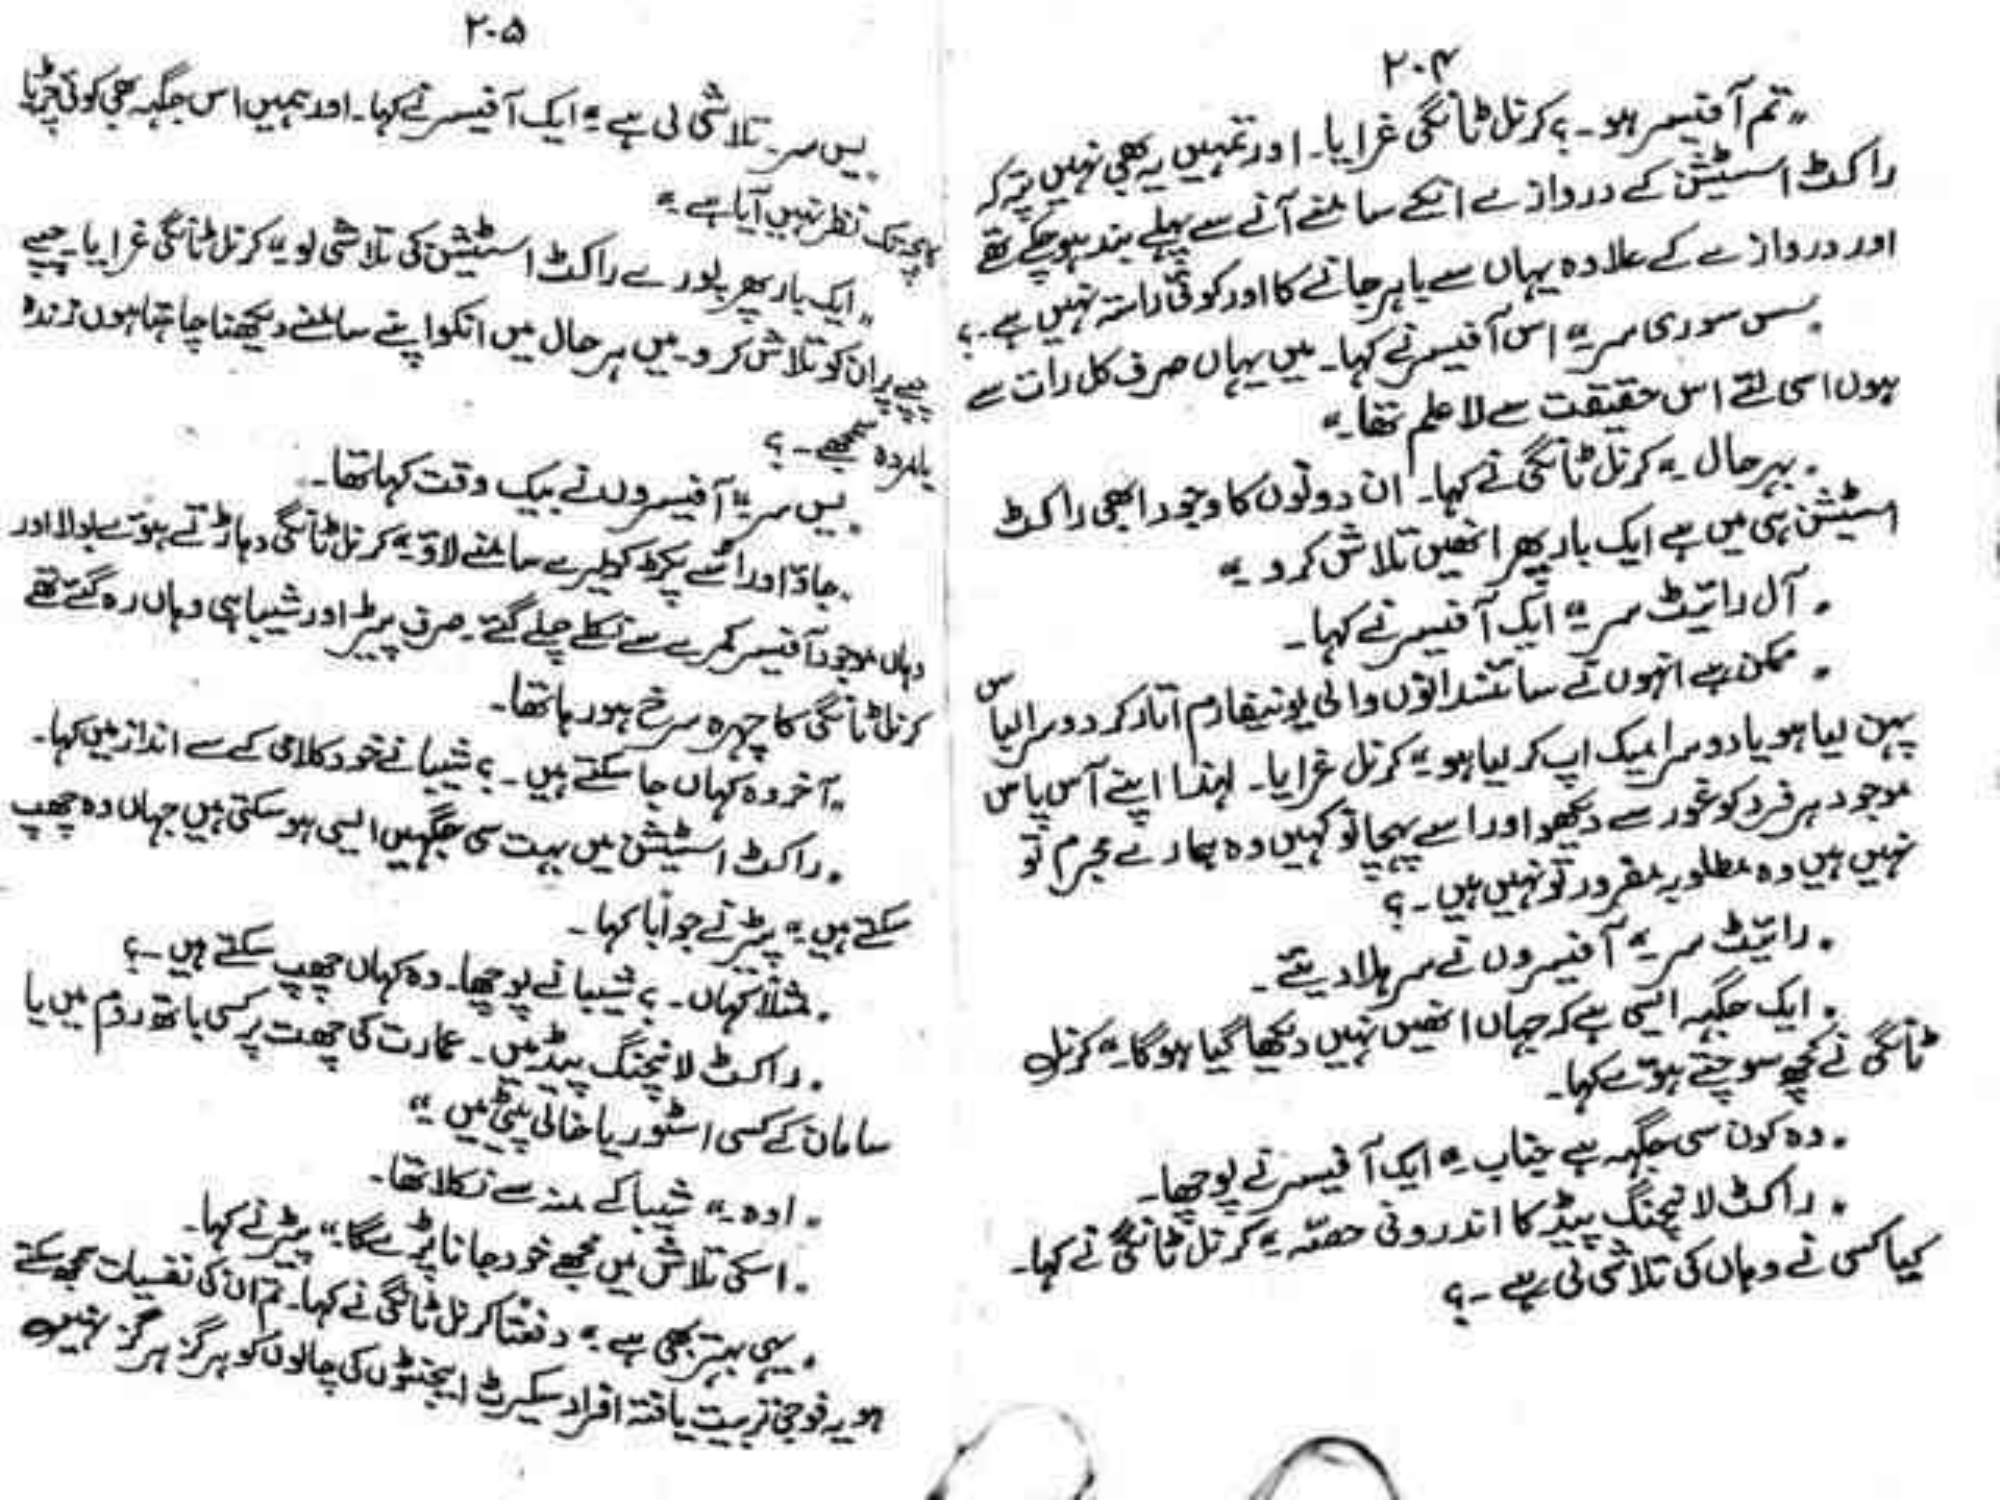 ۲۰۴
"تم آفیسر ہو۔؟ کرنل ٹانگی غرایا۔ اور تمہیں یہ بھی نہیں پتہ کہ
راکٹ اسٹیشن کے دروازے انکے سامنے آنے سے پہلے بند ہو چکے تھے
اور دروازے کے علاوہ یہاں سے باہر جانے کا اور کوئی راستہ نہیں ہے۔؟
"یس سوری سر" اس آفیسر نے کہا۔ میں یہاں صرف کل رات سے
ہوں اسی لئے اس حقیقت سے لا علم تھا۔"
"بہر حال" کرنل ٹانگی نے کہا۔ ان دونوں کا وجود ابھی راکٹ
اسٹیشن ہی میں ہے ایک بار پھر انھیں تلاش کرو۔"
"آل رائیٹ سر" ایک آفیسر نے کہا۔
"ممکن ہے انہوں نے سائنسدانوں والی یونیفارم اتار کر دوسرا لباس
پہن لیا ہو یا دوسرا میک اپ کر لیا ہو" کرنل غرایا۔ لہٰذا اپنے آس پاس
موجود ہر فرد کو غور سے دیکھو اور اسے پہچانو کہیں وہ ہمارے مجرم تو
نہیں ہیں وہ مطلوبہ مفرور تو نہیں ہیں۔؟
"رائیٹ سر" آفیسروں نے سر ہلا دیئے۔
"ایک جگہہ ایسی ہے کہ جہاں انھیں نہیں دیکھا گیا ہوگا" کرنل
ٹانگی نے کچھ سوچتے ہوئے کہا۔
"وہ کون سی جگہہ ہے جناب۔" ایک آفیسر نے پوچھا۔
"راکٹ لانچنگ پیڈ کا اندرونی حصّہ" کرنل ٹانگی نے کہا۔
کیا کسی نے وہاں کی تلاشی لی ہے۔؟
۲۰۵
"یس سر۔ تلاشی لی ہے" ایک آفیسر نے کہا۔ اور ہمیں اس جگہہ بھی کوئی چڑیا
تک نظر نہیں آیا ہے۔"
"ایک بار پھر پورے راکٹ اسٹیشن کی تلاشی لو" کرنل ٹانگی غرایا۔ چپے
چپے پر ان کو تلاش کرو۔ میں ہر حال میں انکو اپنے سامنے دیکھنا چاہتا ہوں زندہ
یا مردہ سمجھے۔؟
"یس سر" آفیسروں نے بیک وقت کہا تھا۔
"جاؤ اور انہیں پکڑ کر میرے سامنے لاؤ" کرنل ٹانگی دہاڑتے ہوئے بولا اور
وہاں موجود آفیسر کمرے سے نکلے چلے گئے۔ صرف پیٹر اور شیبا ہی وہاں رہ گئے تھے
کرنل ٹانگی کا چہرہ سرخ ہو رہا تھا۔
"آخر وہ کہاں جا سکتے ہیں۔؟ شیبا نے خود کلامی کے سے انداز میں کہا۔
"راکٹ اسٹیشن میں بہت سی جگہیں ایسی ہو سکتی ہیں جہاں وہ چھپ
سکتے ہیں" پیٹر نے جواباً کہا۔
"مثلاً کہاں۔؟ شیبا نے پوچھا۔ وہ کہاں چھپ سکتے ہیں۔؟
"راکٹ لانچنگ پیڈ میں۔ عمارت کی چھت پر کسی باتھ روم میں یا
سامان کے کسی اسٹور یا خالی پیٹی میں۔"
"اوہ۔" شیبا کے منہ سے نکلا تھا۔
"اسکی تلاش میں مجھے خود جانا پڑے گا۔" پیٹر نے کہا۔
"یہی بہتر بھی ہے" دفعتاً کرنل ٹانگی نے کہا۔ تم ان کی نفسیات سمجھ سکتے
ہو یہ فوجی تربیت یافتہ افراد سیکرٹ ایجنٹوں کی چالوں کو ہرگز ہرگز نہیں